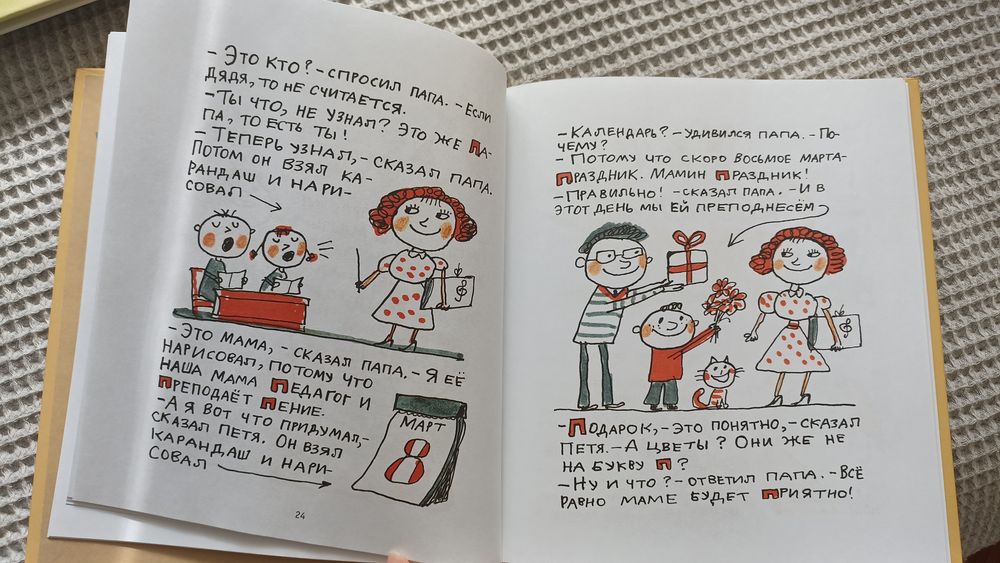 – Это кто? – спросил папа. – Если
дядя, то не считается.
– Ты что, не узнал? Это же па-
па, то есть ты!
– Теперь узнал, – сказал папа.
Потом он взял ка-
рандаш и нари-
совал
– Это мама, – сказал папа. – Я её
нарисовал, потому что
наша мама педагог и
преподаёт пение.
– А я вот что придумал, –
сказал Петя. Он взял
карандаш и нари-
совал
МАРТ
8
24
– Календарь? – удивился папа. – По-
чему?
– Потому что скоро восьмое марта –
праздник. Мамин праздник!
– Правильно! – сказал папа. – И в
этот день мы ей преподнесём
– Подарок, – это понятно, – сказал
Петя. – А цветы? Они же не
на букву П?
– Ну и что? – ответил папа. – Всё
равно маме будет приятно!